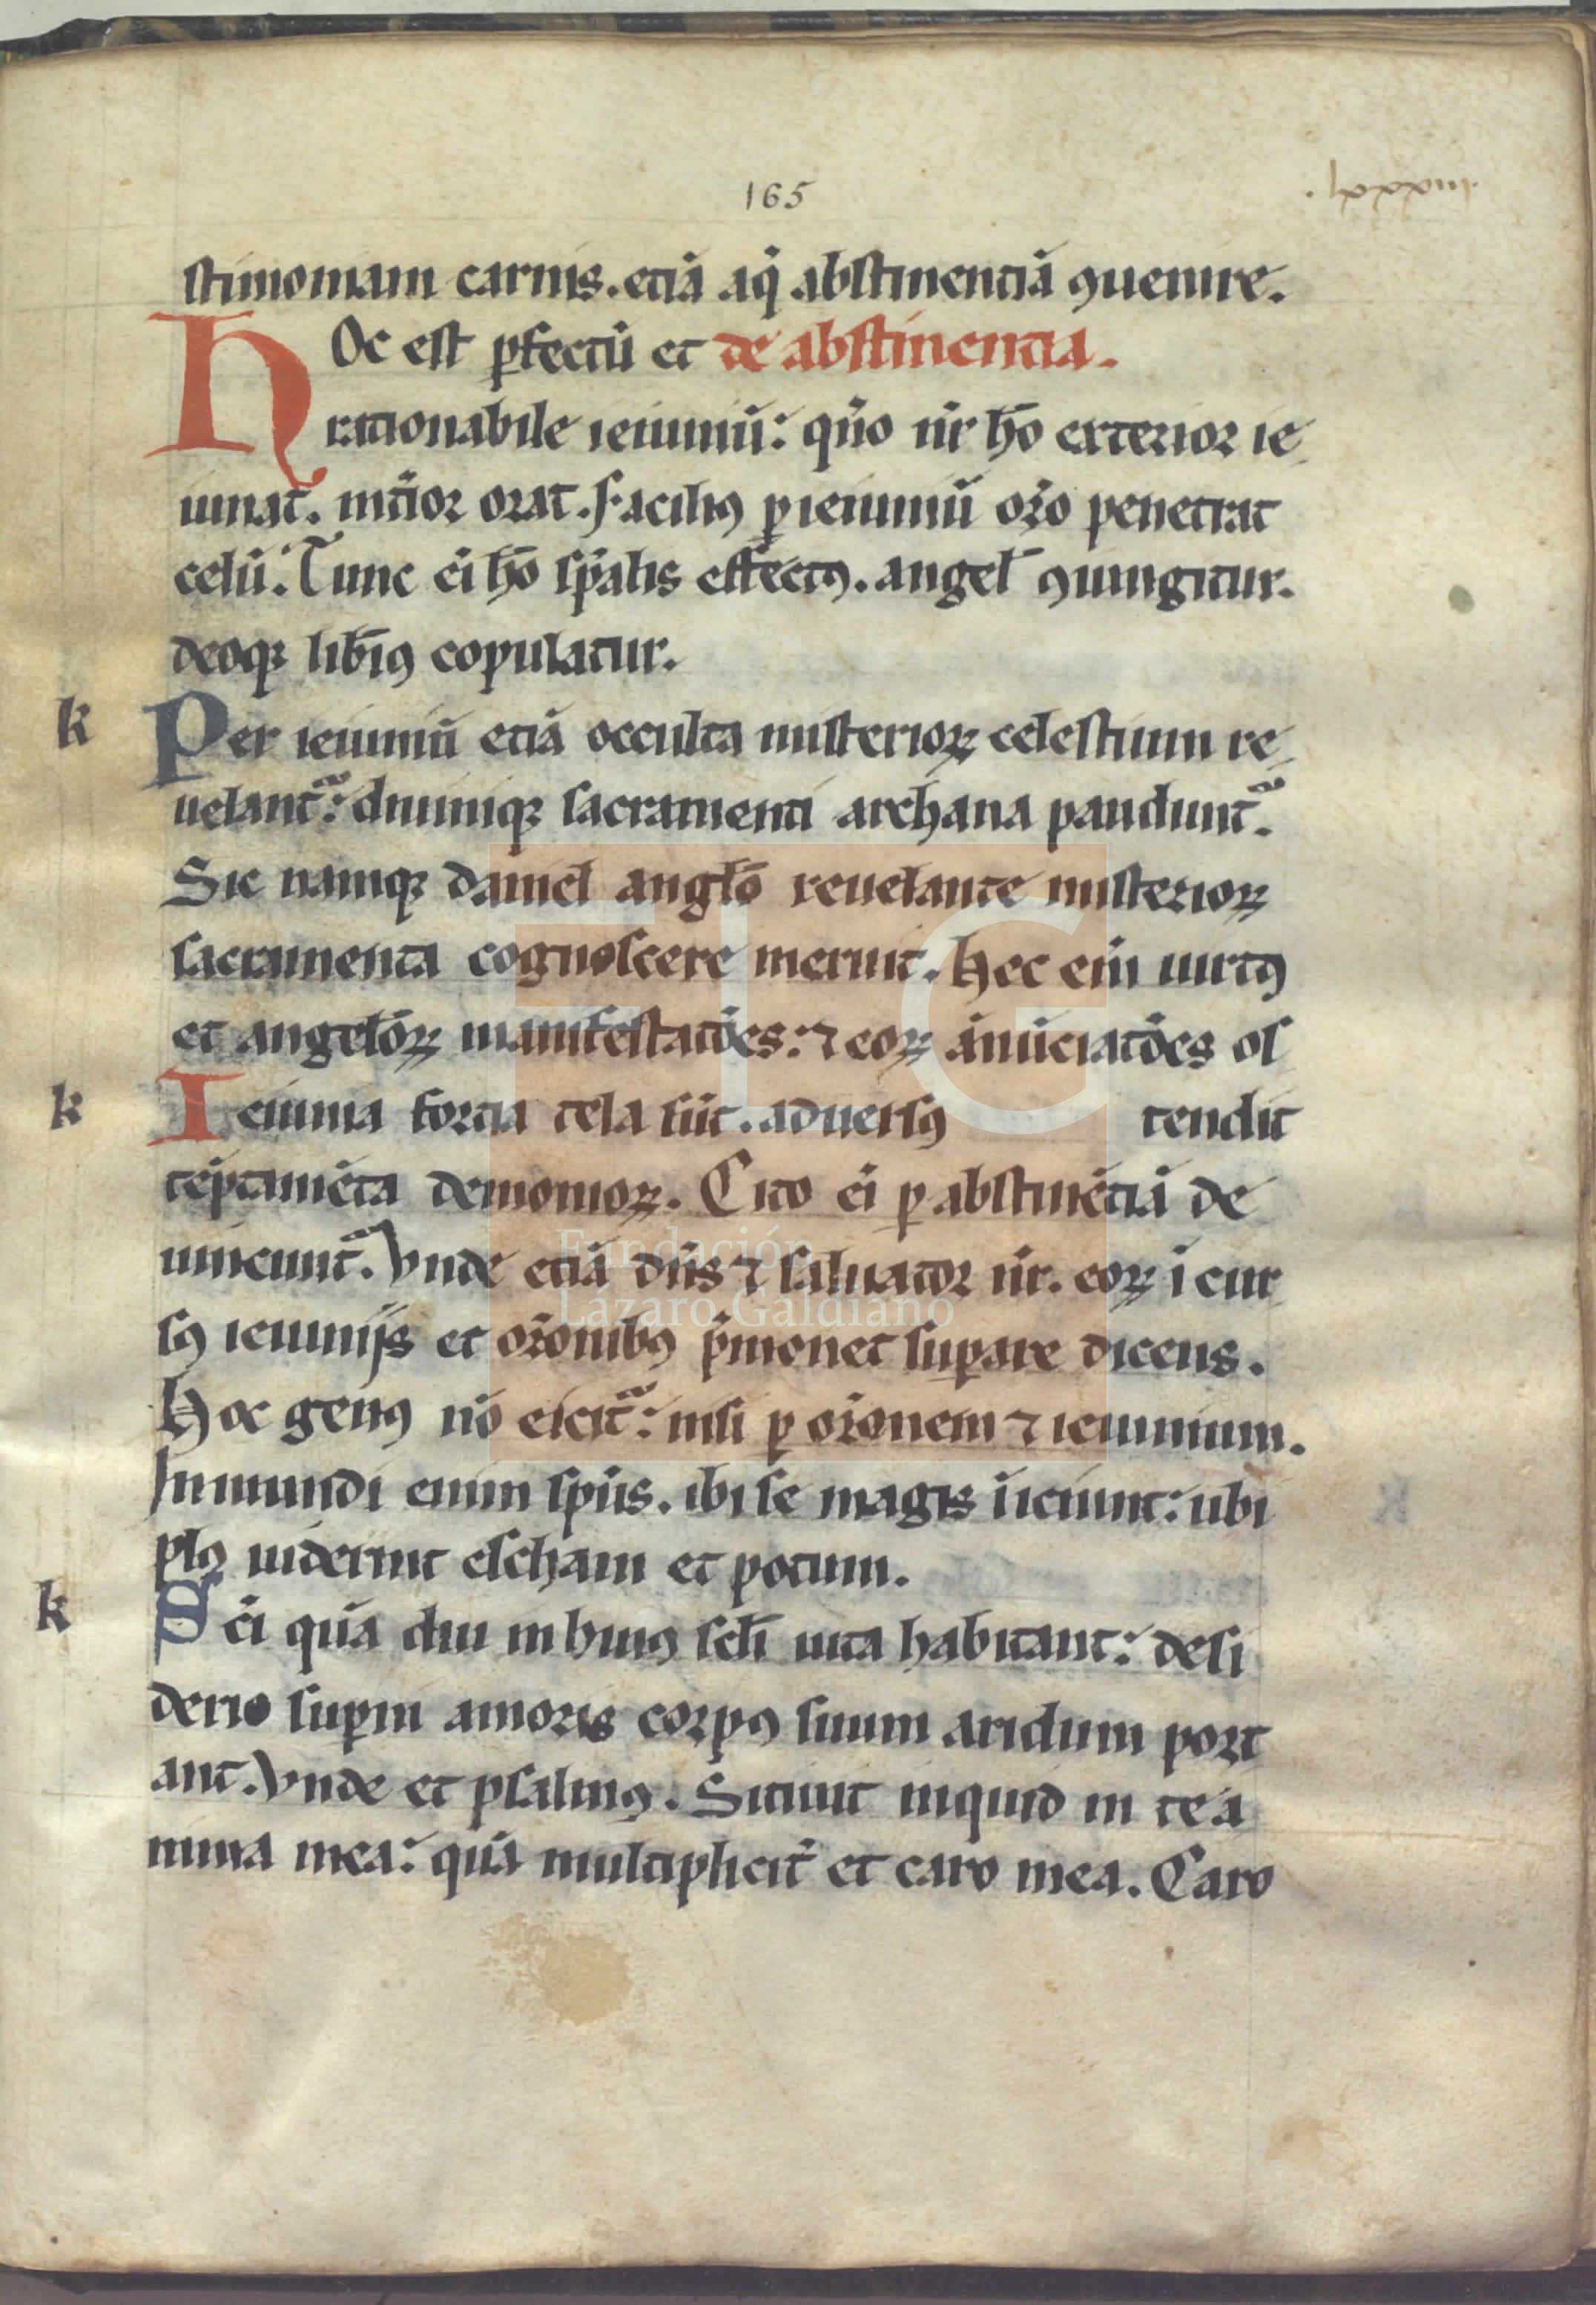 165
.lxxxiiij.
stimoniam carnis. etiā aq̄ abstinentiā ꝯuenire.
HOc est ꝑfectū et de abstinentia.
rationabile ieiuniū: qn̄o nr̄ hō exterior ie
iunat. int̄ior orat. Faciliꝰ ꝑ ieiuniū or̄o penetrat
celū. Tunc ei̅ hō sp̄alis effectꝰ. angel̄ ꝯiungitur.
deoqꝫ lib̄iꝰ copulatur.
k
Per ieiuniū etiā occulta misterioꝝ celestium re
uelant᷑: diuiniqꝫ sacramenti archana pandunt᷑.
Sic namqꝫ daniel angl̄o reuelante misterioꝝ
sacramenta cognoscere meruit. Hec eni̅ uirtꝰ
et angel̄oꝝ manifestatōes: ⁊ eoꝝ ānūciatōes os
k
Ieiunia fortia tela sūt. aduersꝰ tendit
tēptamēta demonioꝝ. Cito ei̅ ꝑ abstinētiā de
uincunt᷑. Vnde etiā dn̄s ⁊ saluator nr̄. eoꝝ ī cur
sꝰ ieiunijs et or̄onibꝰ p̄monet suꝑare dicens.
Hoc genꝰ nō eicit᷑: nisi ꝑ or̄onem ⁊ ieiunium.
Inmundi enim sp̄us. ibi se magis īiciunt: ubi
plꝰ uiderint escham et potum.
k
Sc̄i quā diu in huiꝰ sc̄li uita habitant: desi
derio suꝑni amoris corpꝰ suum aridum port
ant. Vnde et psalmꝰ. Sitiuit inquid in te a
nima mea: quā multiplicit̄ et caro mea. Caro
FLG
Fundación
Lázaro Galdiano